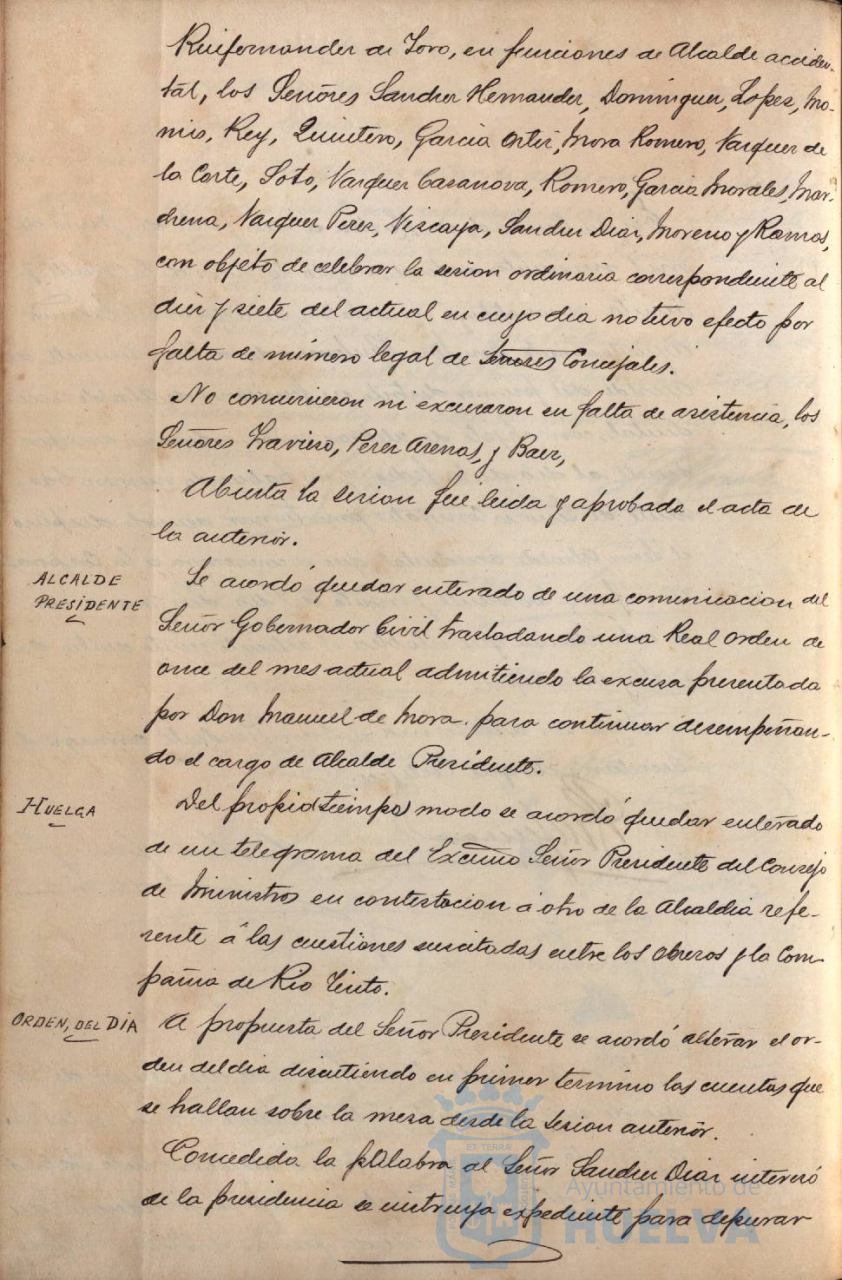 Ruifernandez de Toro, en funciones de Alcalde acciden-
tal, los Señores Sanchez Hernandez, Dominguez, Lopez, Mo-
nis, Rey, Quintero, Garcia Ortiz, Mora Romero, Vazquez de
la Corte, Soto, Vazquez Casanova, Romero, Garcia Morales, Mar-
chena, Vazquez Perez, Vizcaya, Sanchez Diaz, Moreno y Ramos,
con objeto de celebrar la sesion ordinaria correspondiente al
diez y siete del actual en cuyo dia no tuvo efecto por
falta de número legal de Señores Concejales.
No concurrieron ni excusaron su falta de asistencia, los
Señores Travieso, Perez Arenas, y Baez,
Abierta la sesion fué leida y aprobada el acta de
la anterior.
ALCALDE
PRESIDENTE
Se acordó quedar enterado de una comunicacion del
Señor Gobernador Civil trasladando una Real orden de
once del mes actual admitiendo la excusa presentada
por Don Manuel de Mora para continuar desempeñan-
do el cargo de Alcalde Presidente.
HUELGA
Del propio (tiempo) modo se acordó quedar enterado
de un telegrama del Excmo Señor Presidente del Consejo
de Ministros en contestacion á otro de la Alcaldia refe-
rente á las cuestiones suscitadas entre los obreros y la Com-
pañia de Rio Tinto.
ORDEN, DEL DÍA
A propuesta del Señor Presidente se acordó alterar el or-
den del dia discutiendo en primer termino las cuentas que
se hallan sobre la mesa desde la sesion anterior.
Concedida la palabra al Señor Sanchez Diaz interesó
de la presidencia se instruya expediente para depurar
Ayuntamiento de
HUELVA